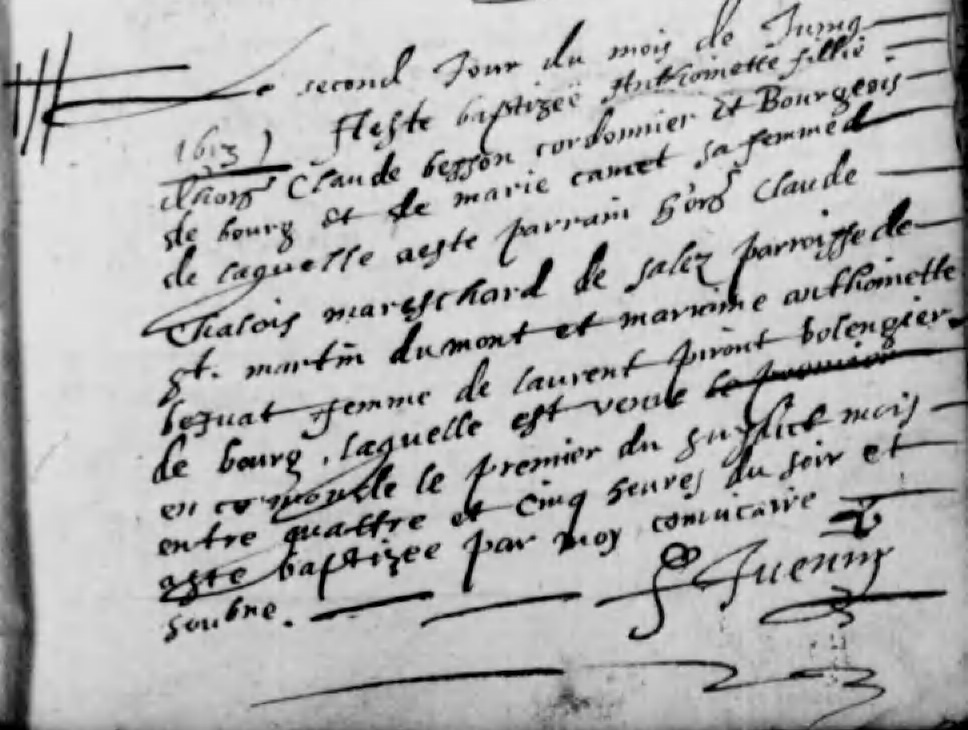 Le second Jour du mois de Juing
1613) Aesté baptizeë Anthoinette fillie
Claude besson cordonnier et Bourgeois
de bourg et de marie camet sa femme
de laquelle aeste parrain hors Claude
Chalois mareschard de salez parroisse de
st. martin dumont et marraine anthoinette
femme de laurent piront bolengier
de bourg. laquelle est venue le premier
en ce monde le premier du susdict mois
entre quattre et cinq heures du soir et
aeste baptizee par moy convicaire
soubne.